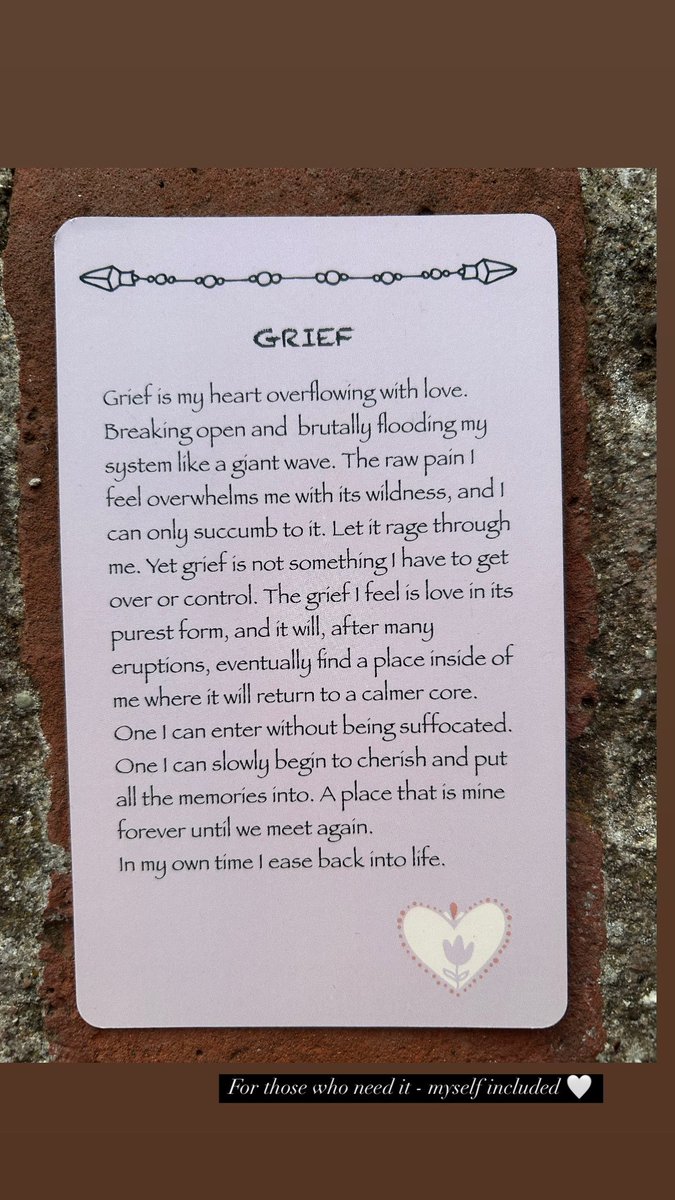 GRIEF
Grief is my heart overflowing with love.
Breaking open and brutally flooding my
system like a giant wave. The raw pain I
feel overwhelms me with its wildness, and I
can only succumb to it. Let it rage through
me. Yet grief is not something I have to get
over or control. The grief I feel is love in its
purest form, and it will, after many
eruptions, eventually find a place inside of
me where it will return to a calmer core.
One I can enter without being suffocated.
One I can slowly begin to cherish and put
all the memories into. A place that is mine
forever until we meet again.
In my own time I ease back into life.
For those who need it - myself included 🤍